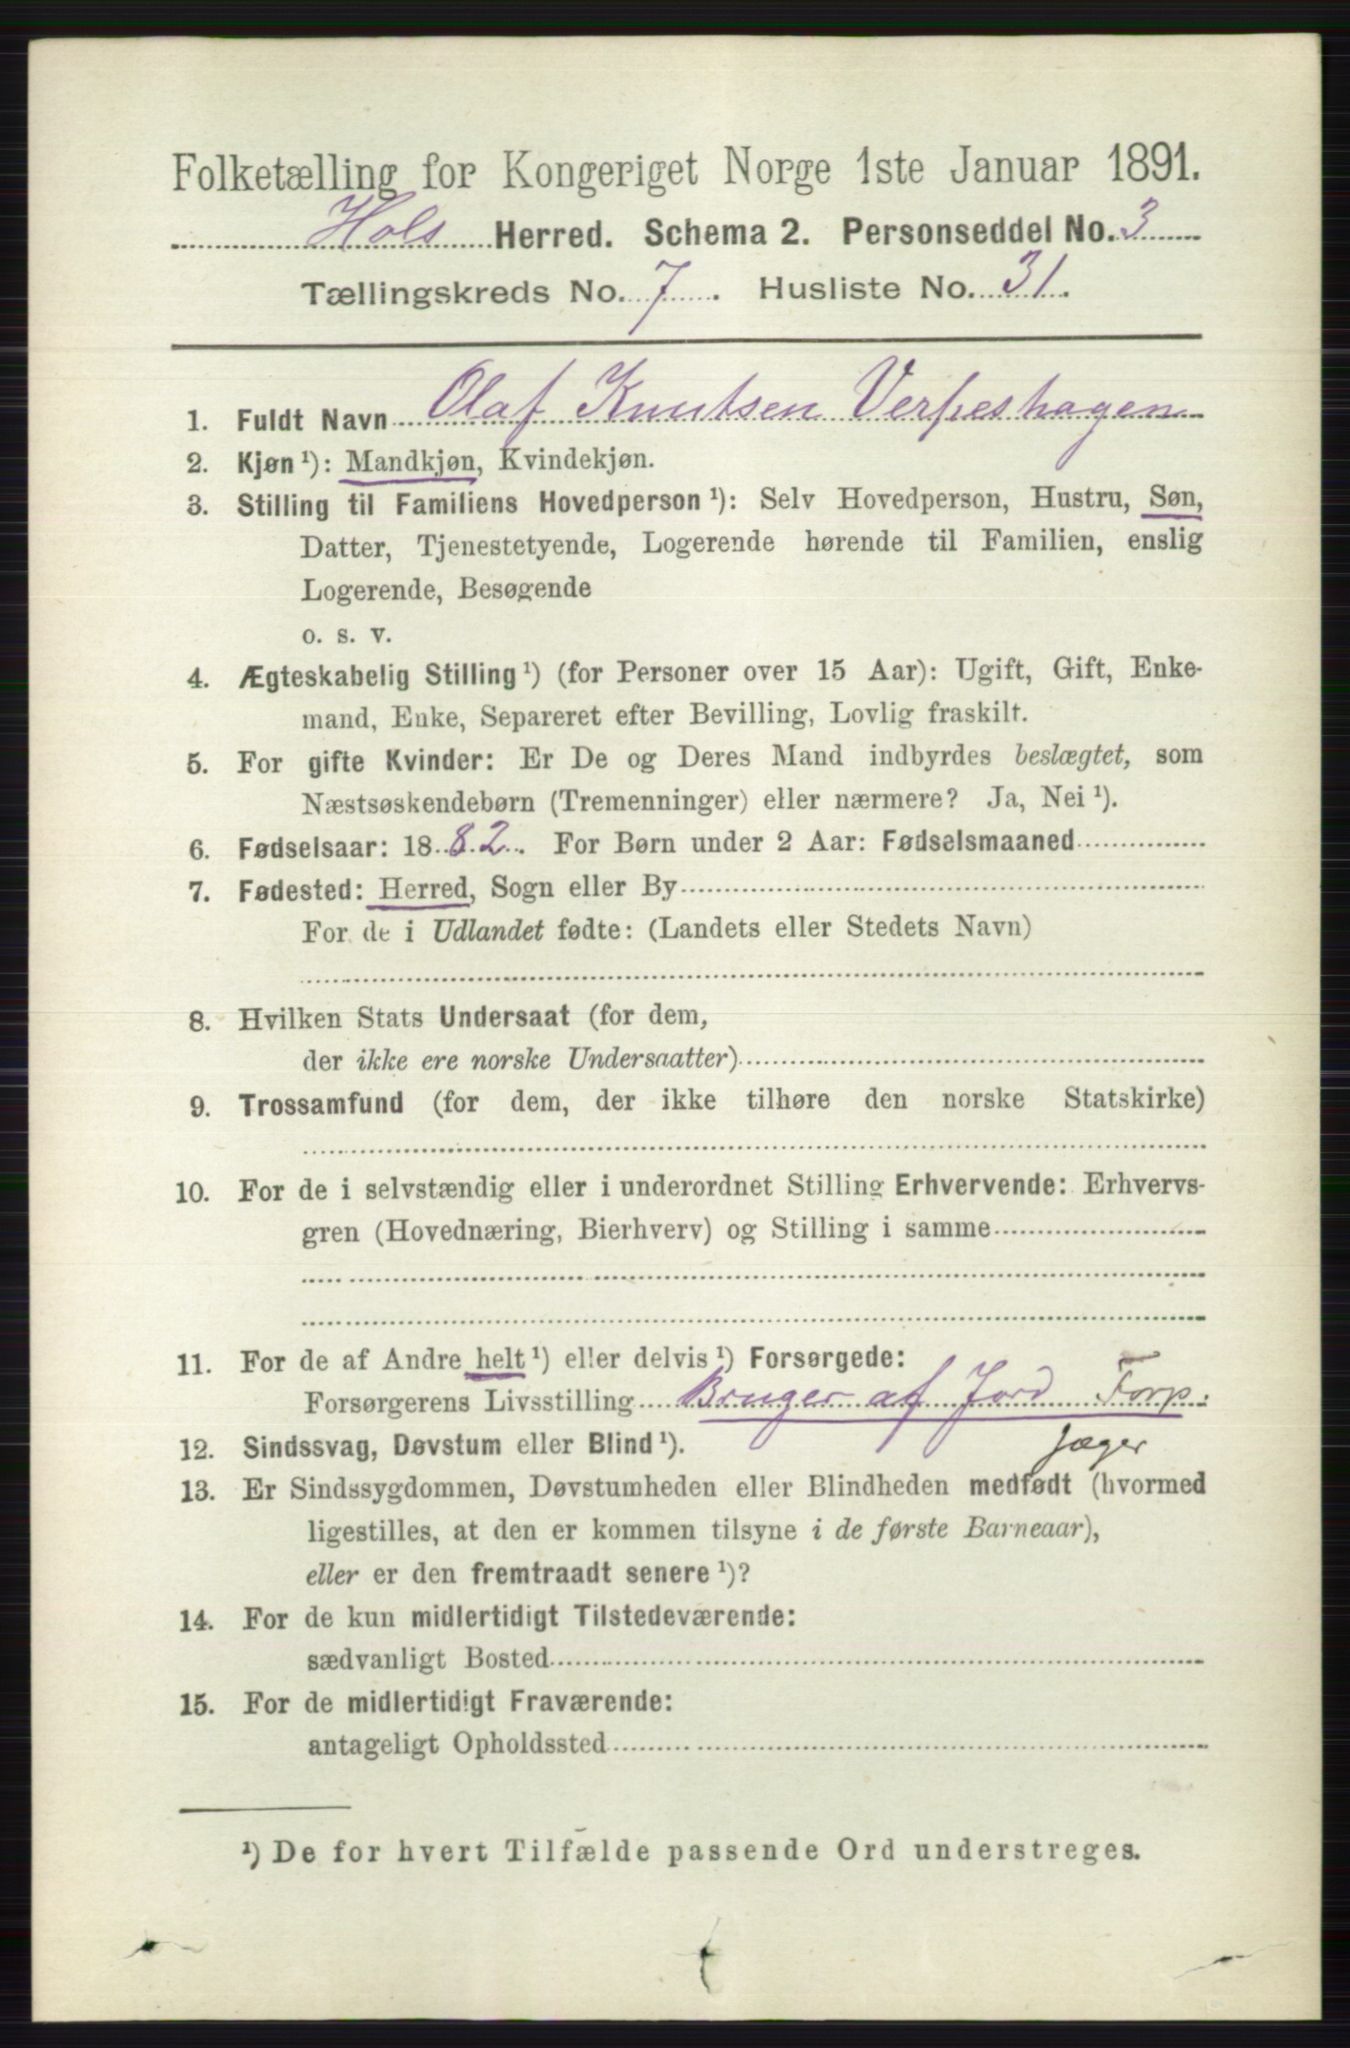 Folketælling for Kongeriget Norge 1ste Januar 1891.
Hols Herred. Schema 2. Personseddel No. 3
Tællingskreds No. 7. Husliste No. 31.
1. Fuldt Navn Olaf Knutsen Verpeshagen
2. Kjøn ¹): Mandkjøn, Kvindekjøn.
3. Stilling til Familiens Hovedperson ¹): Selv Hovedperson, Hustru, Søn,
Datter, Tjenestetyende, Logerende hørende til Familien, enslig
Logerende, Besøgende
o. s. v.
4. Ægteskabelig Stilling ¹) (for Personer over 15 Aar): Ugift, Gift, Enke-
mand, Enke, Separeret efter Bevilling, Lovlig fraskilt.
5. For gifte Kvinder: Er De og Deres Mand indbyrdes beslægtet, som
Næstsøskendebørn (Tremenninger) eller nærmere? Ja, Nei ¹).
6. Fødselsaar: 1882. For Børn under 2 Aar: Fødselsmaaned
7. Fødested: Herred, Sogn eller By
For de i Udlandet fødte: (Landets eller Stedets Navn)
8. Hvilken Stats Undersaat (for dem,
der ikke ere norske Undersaatter)
9. Trossamfund (for dem, der ikke tilhøre den norske Statskirke)
10. For de i selvstændig eller i underordnet Stilling Erhvervende: Erhvervs-
gren (Hovednæring, Bierhverv) og Stilling i samme
11. For de af Andre helt ¹) eller delvis ¹) Forsørgede:
Forsørgerens Livsstilling Bruger af Jord Forp.
jæger
12. Sindssvag, Døvstum eller Blind ¹).
13. Er Sindssygdommen, Døvstumheden eller Blindheden medfødt (hvormed
ligestilles, at den er kommen tilsyne i de første Barneaar),
eller er den fremtraadt senere ¹)?
14. For de kun midlertidigt Tilstedeværende:
sædvanligt Bosted
15. For de midlertidigt Fraværende:
antageligt Opholdssted
¹) De for hvert Tilfælde passende Ord understreges.